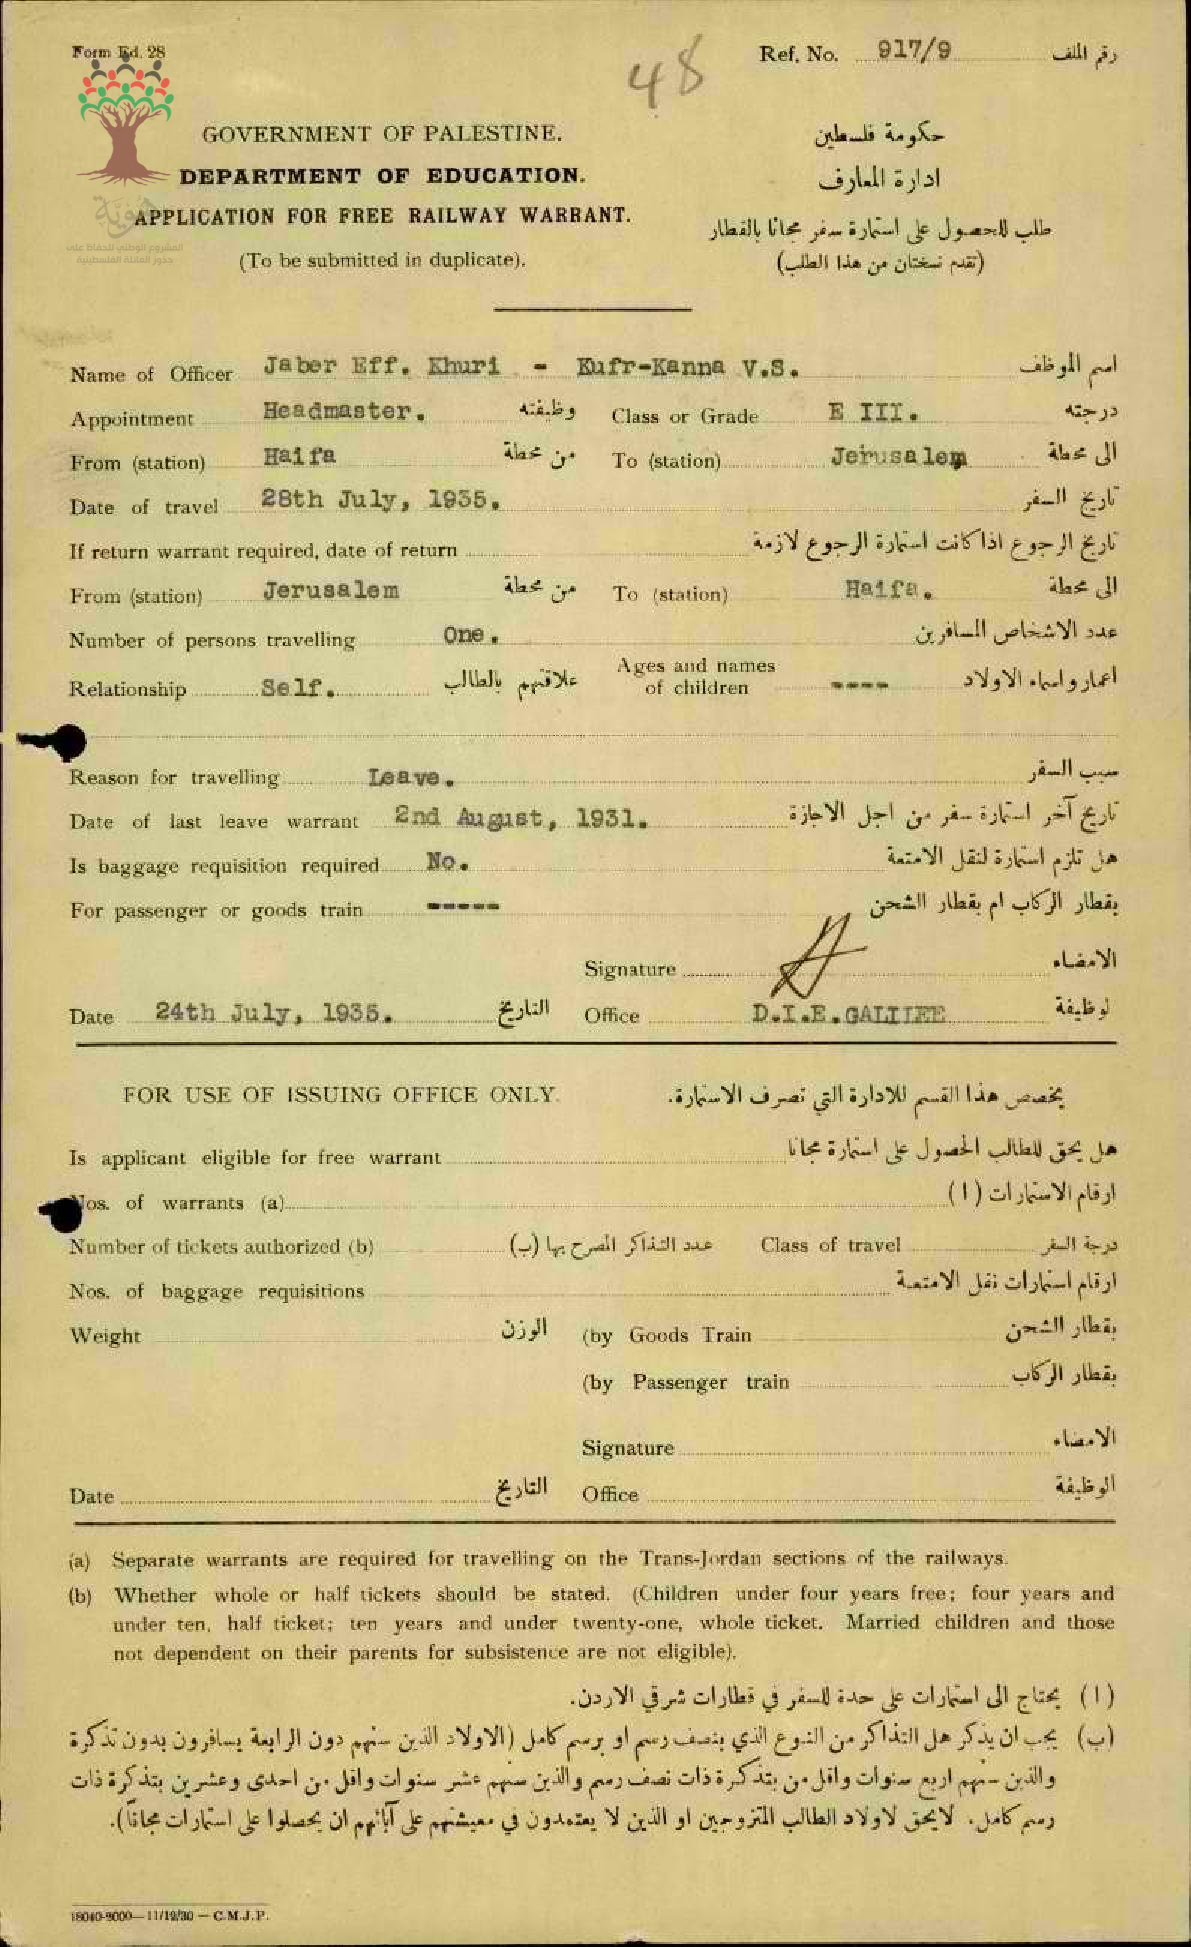 Form Ed. 28
48
Ref. No. 917/9 رقم الملف
GOVERNMENT OF PALESTINE. حكومة فلسطين
DEPARTMENT OF EDUCATION. ادارة المعارف
APPLICATION FOR FREE RAILWAY WARRANT. طلب للحصول على استمارة سفر مجانا بالقطار
(To be submitted in duplicate). (تقدم نسختان من هذا الطلب)
هوية
المشروع الوطني للحفاظ على
جذور العائلة الفلسطينية
Name of Officer Jaber Eff. Khuri - Kufr-Kanna V.S. اسم الموظف
Appointment Headmaster. وظيفته Class or Grade E III. درجته
From (station) Haifa من محطة To (station) Jerusalem الى محطة
Date of travel 28th July, 1935. تاريخ السفر
If return warrant required, date of return تاريخ الرجوع اذا كانت استمارة الرجوع لازمة
From (station) Jerusalem من محطة To (station) Haifa. الى محطة
Number of persons travelling One. عدد الاشخاص المسافرين
Relationship Self. علاقتهم بالطالب Ages and names of children ---- اعمار واسماء الاولاد
Reason for travelling Leave. سبب السفر
Date of last leave warrant 2nd August, 1931. تاريخ آخر استمارة سفر من اجل الاجازة
Is baggage requisition required No. هل تلزم استمارة لنقل الامتعة
For passenger or goods train ----- بقطار الركاب ام بقطار الشحن
Signature الامضاء
Date 24th July, 1935. التاريخ Office D.I.E. GALILEE لوظيفة
FOR USE OF ISSUING OFFICE ONLY. يخصص هذا القسم للادارة التي تصرف الاستمارة.
Is applicant eligible for free warrant هل يحق للطالب الحصول على استمارة مجانا
Nos. of warrants (a) ارقام الاستمارات (ا)
Number of tickets authorized (b) عدد التذاكر المصرح بها (ب) Class of travel درجة السفر
Nos. of baggage requisitions ارقام استمارات نقل الامتعة
Weight الوزن (by Goods Train بقطار الشحن
(by Passenger train بقطار الركاب
Signature الامضاء
Date التاريخ Office الوظيفة
(a) Separate warrants are required for travelling on the Trans-Jordan sections of the railways.
(b) Whether whole or half tickets should be stated. (Children under four years free; four years and
under ten, half ticket; ten years and under twenty-one, whole ticket. Married children and those
not dependent on their parents for subsistence are not eligible).
(ا) يحتاج الى استمارات على حدة للسفر في قطارات شرقي الاردن.
(ب) يجب ان يذكر هل التذاكر من النوع الذي بنصف رسم او برسم كامل (الاولاد الذين سنهم دون الرابعة يسافرون بدون تذكرة
والذين سنهم اربع سنوات واقل من بتذكرة ذات نصف رسم والذين سنهم عشر سنوات واقل من احدى وعشرين بتذكرة ذات
رسم كامل. لا يحق لاولاد الطالب المتزوجين او الذين لا يعتمدون في معيشتهم على آبائهم ان يحصلوا على استمارات مجاناً).
18040-9000—11/12/30 — C.M.J.P.